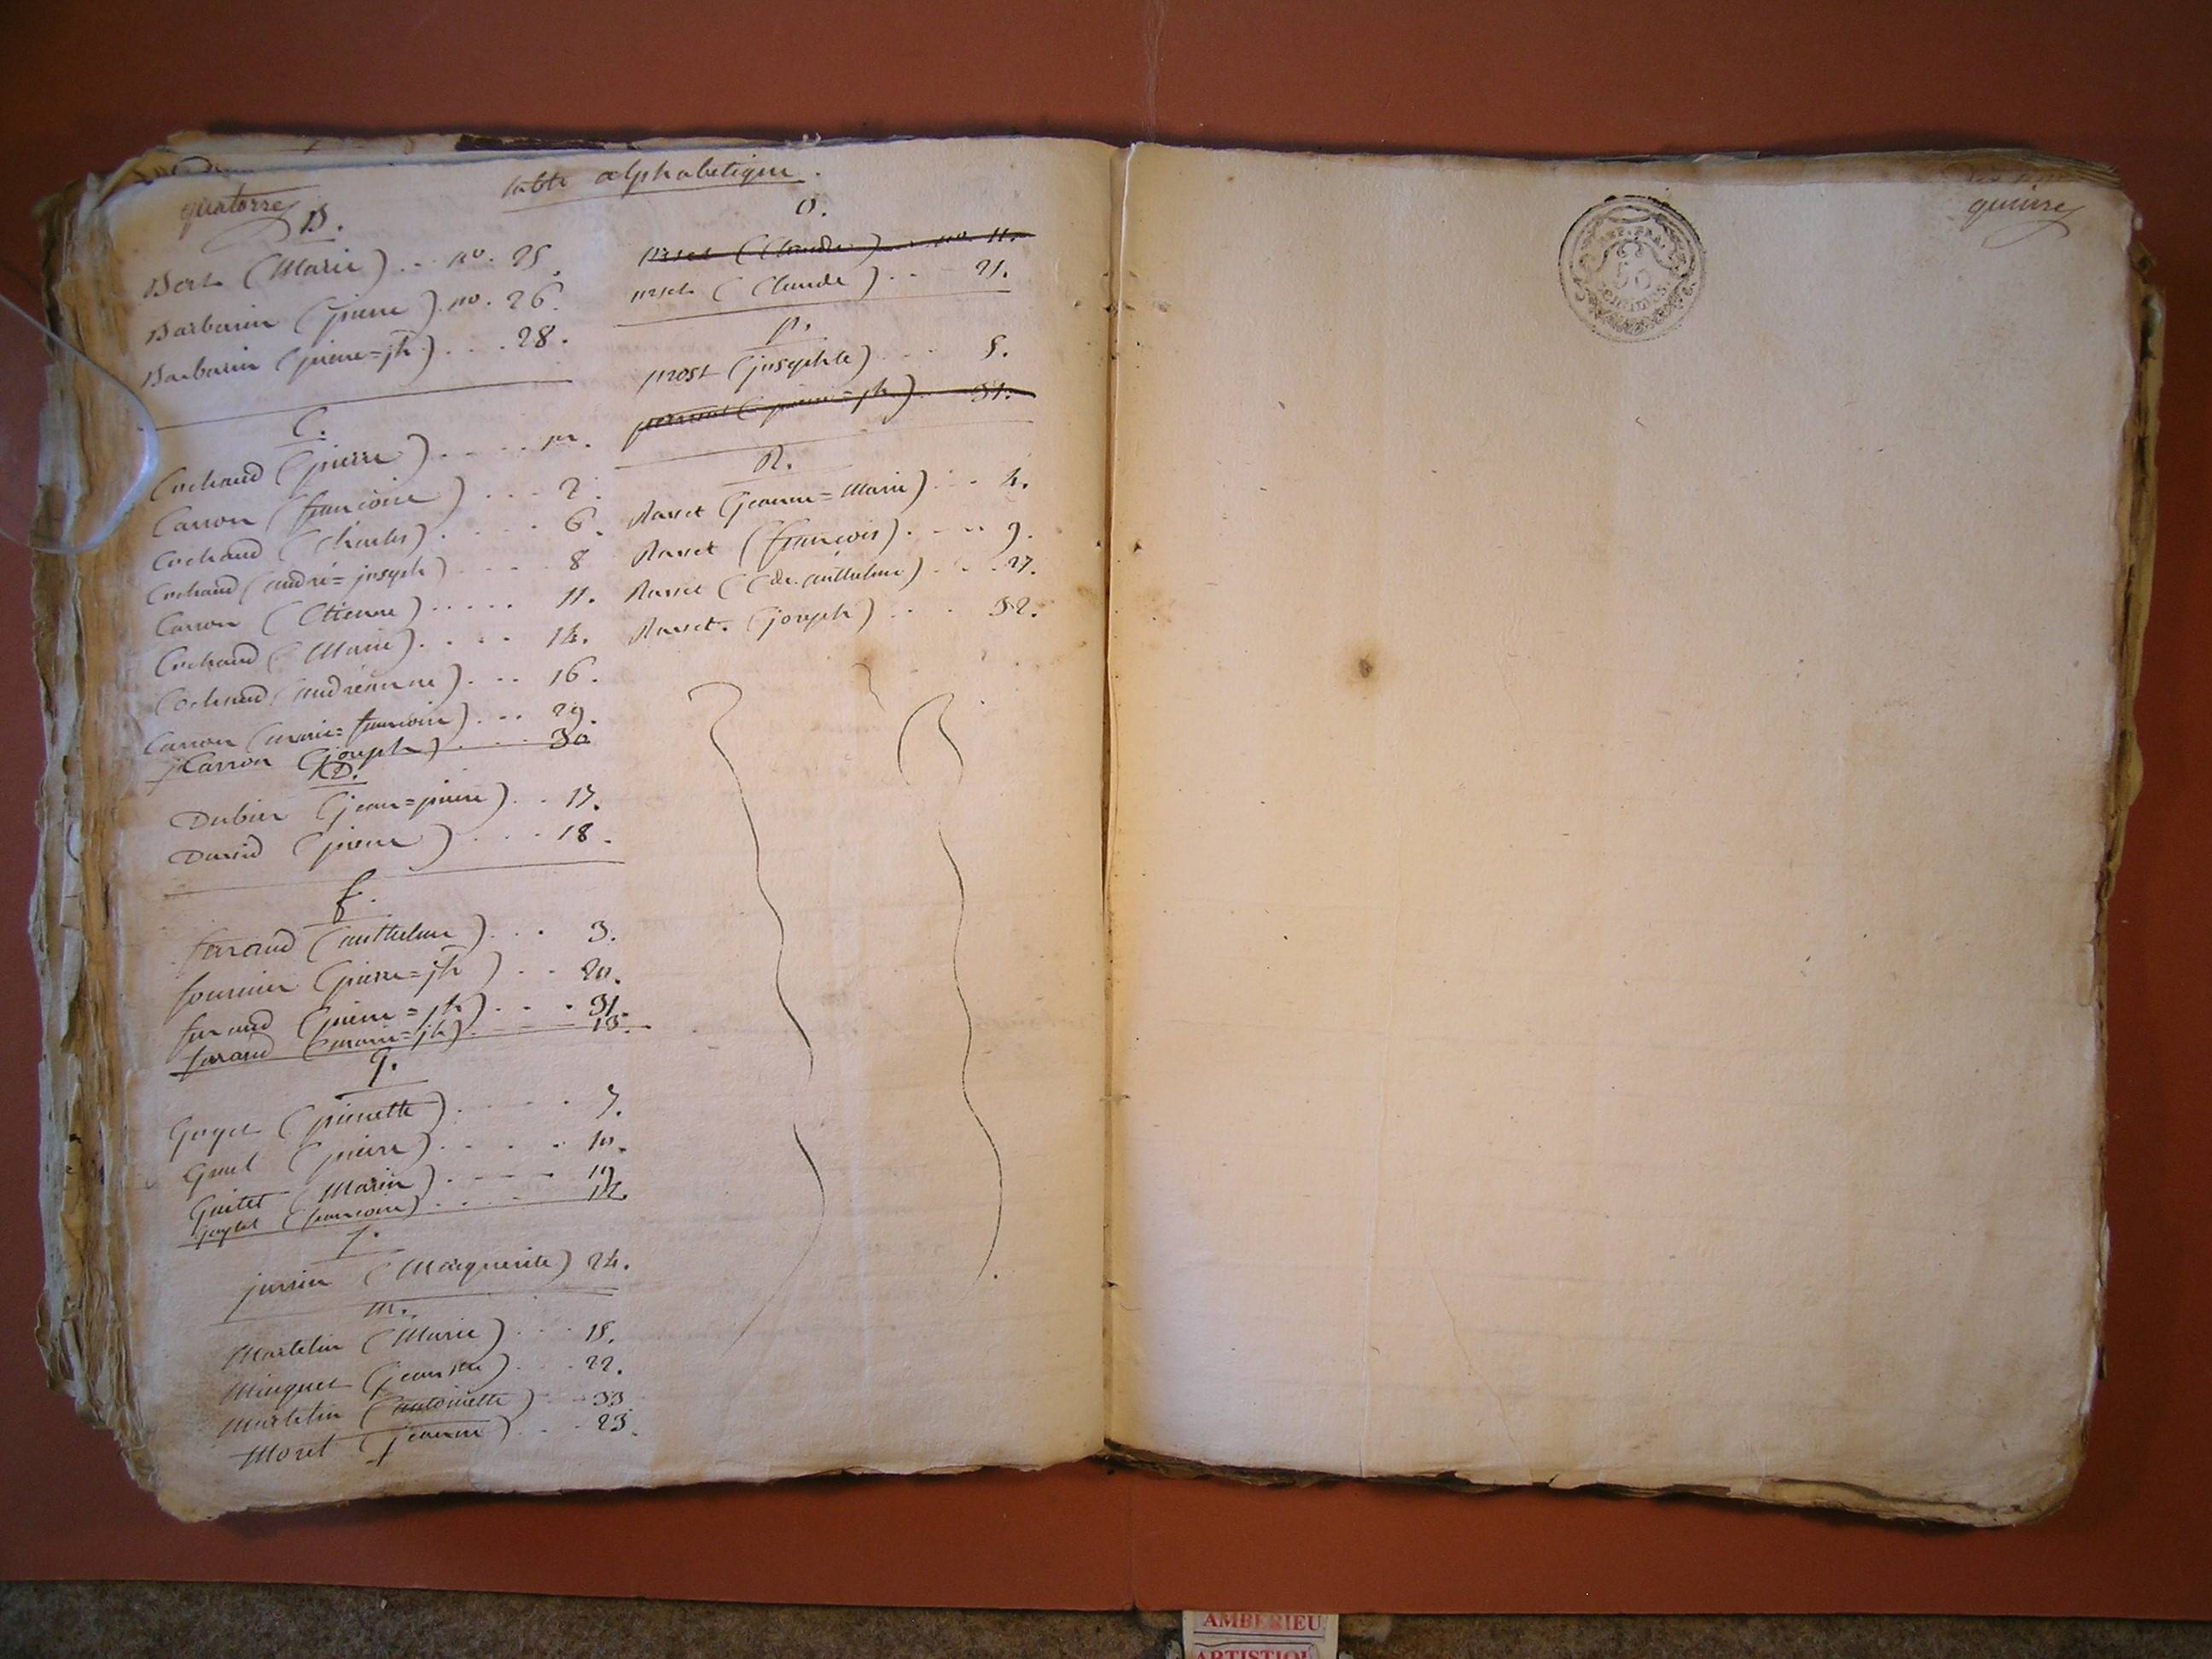 quatorze
table alphabetique.
B.
Bert (Marie) .. no. 25.
Barbarin (pierre) no. 26.
Barbarin (pierre=jh) ... 28.
C.
Cochand (pierre) ..... 1er.
Carron (francoise) ... 2.
Cochand (Charles) .... 6.
Cochand (andré=joseph) .... 8
Carron (Etienne) ..... 11.
Cochand (Marie) .... 14.
Cochand (andréanne) ... 16.
Carron (marie=francoise) ... 29.
Carron (joseph) .... 30
D.
Dubier (jean=pierre) .. 17.
David (pierre) ... 18.
f.
faraud (anthelme) ... 3.
fournier (pierre=jh) .. 20.
faraud (pierre=jh) ... 31.
faraud (marie=jh) ... 13.
g.
Goyet (pierrette) .... 7.
Gruel (pierre) .... 10.
Guitet (Marie) .... 19.
Goyet (francoise) .... 12.
j.
jussin (Marguerite) 24.
m.
Martelin (Marie) ... 15.
Minguet (jean) ... 22.
Martelin (antoinette) .. 33
Moret (jeanne) ... 23.
O.
orset (Claude) no. 11.
orset (Claude) .. 21.
p.
prost (josephte) ... 5.
(pierre=jh) .. 31.
R.
Ravet (jeanne=Marie) ... 4.
Ravet (françois) .... 9.
Ravet (Cde. anthelme) ... 27.
Ravet (joseph) ... 32.
quinze
REP. FRA.
50
centimes
AMBERIEU
ARTISTIQU